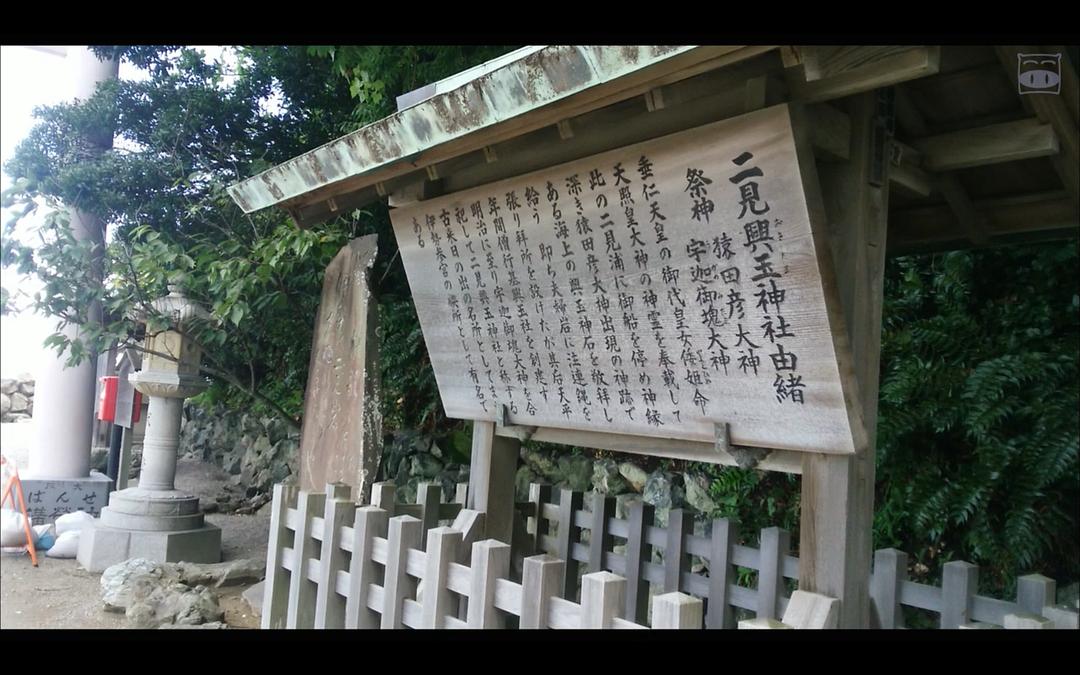 二見興玉神社由緒
おきたま
祭神 猿田彦大神
宇迦御魂大神
垂仁天皇の御代皇女倭姫命
天照皇大神の神霊を奉戴して
此の二見浦に御船を停め神縁
深き猿田彦大神出現の神跡で
ある海上の興玉神石を敬拝し
給う 即ち夫婦岩に注連縄を
張り拝所を設けたが其后天平
年間僧行基興玉社を創建す
明治に至り宇迦御魂大神を合
祀して二見興玉神社と称する
古来日の出の名所としてまた
伊勢参宮の禊所として有名で
ある
ばんせ